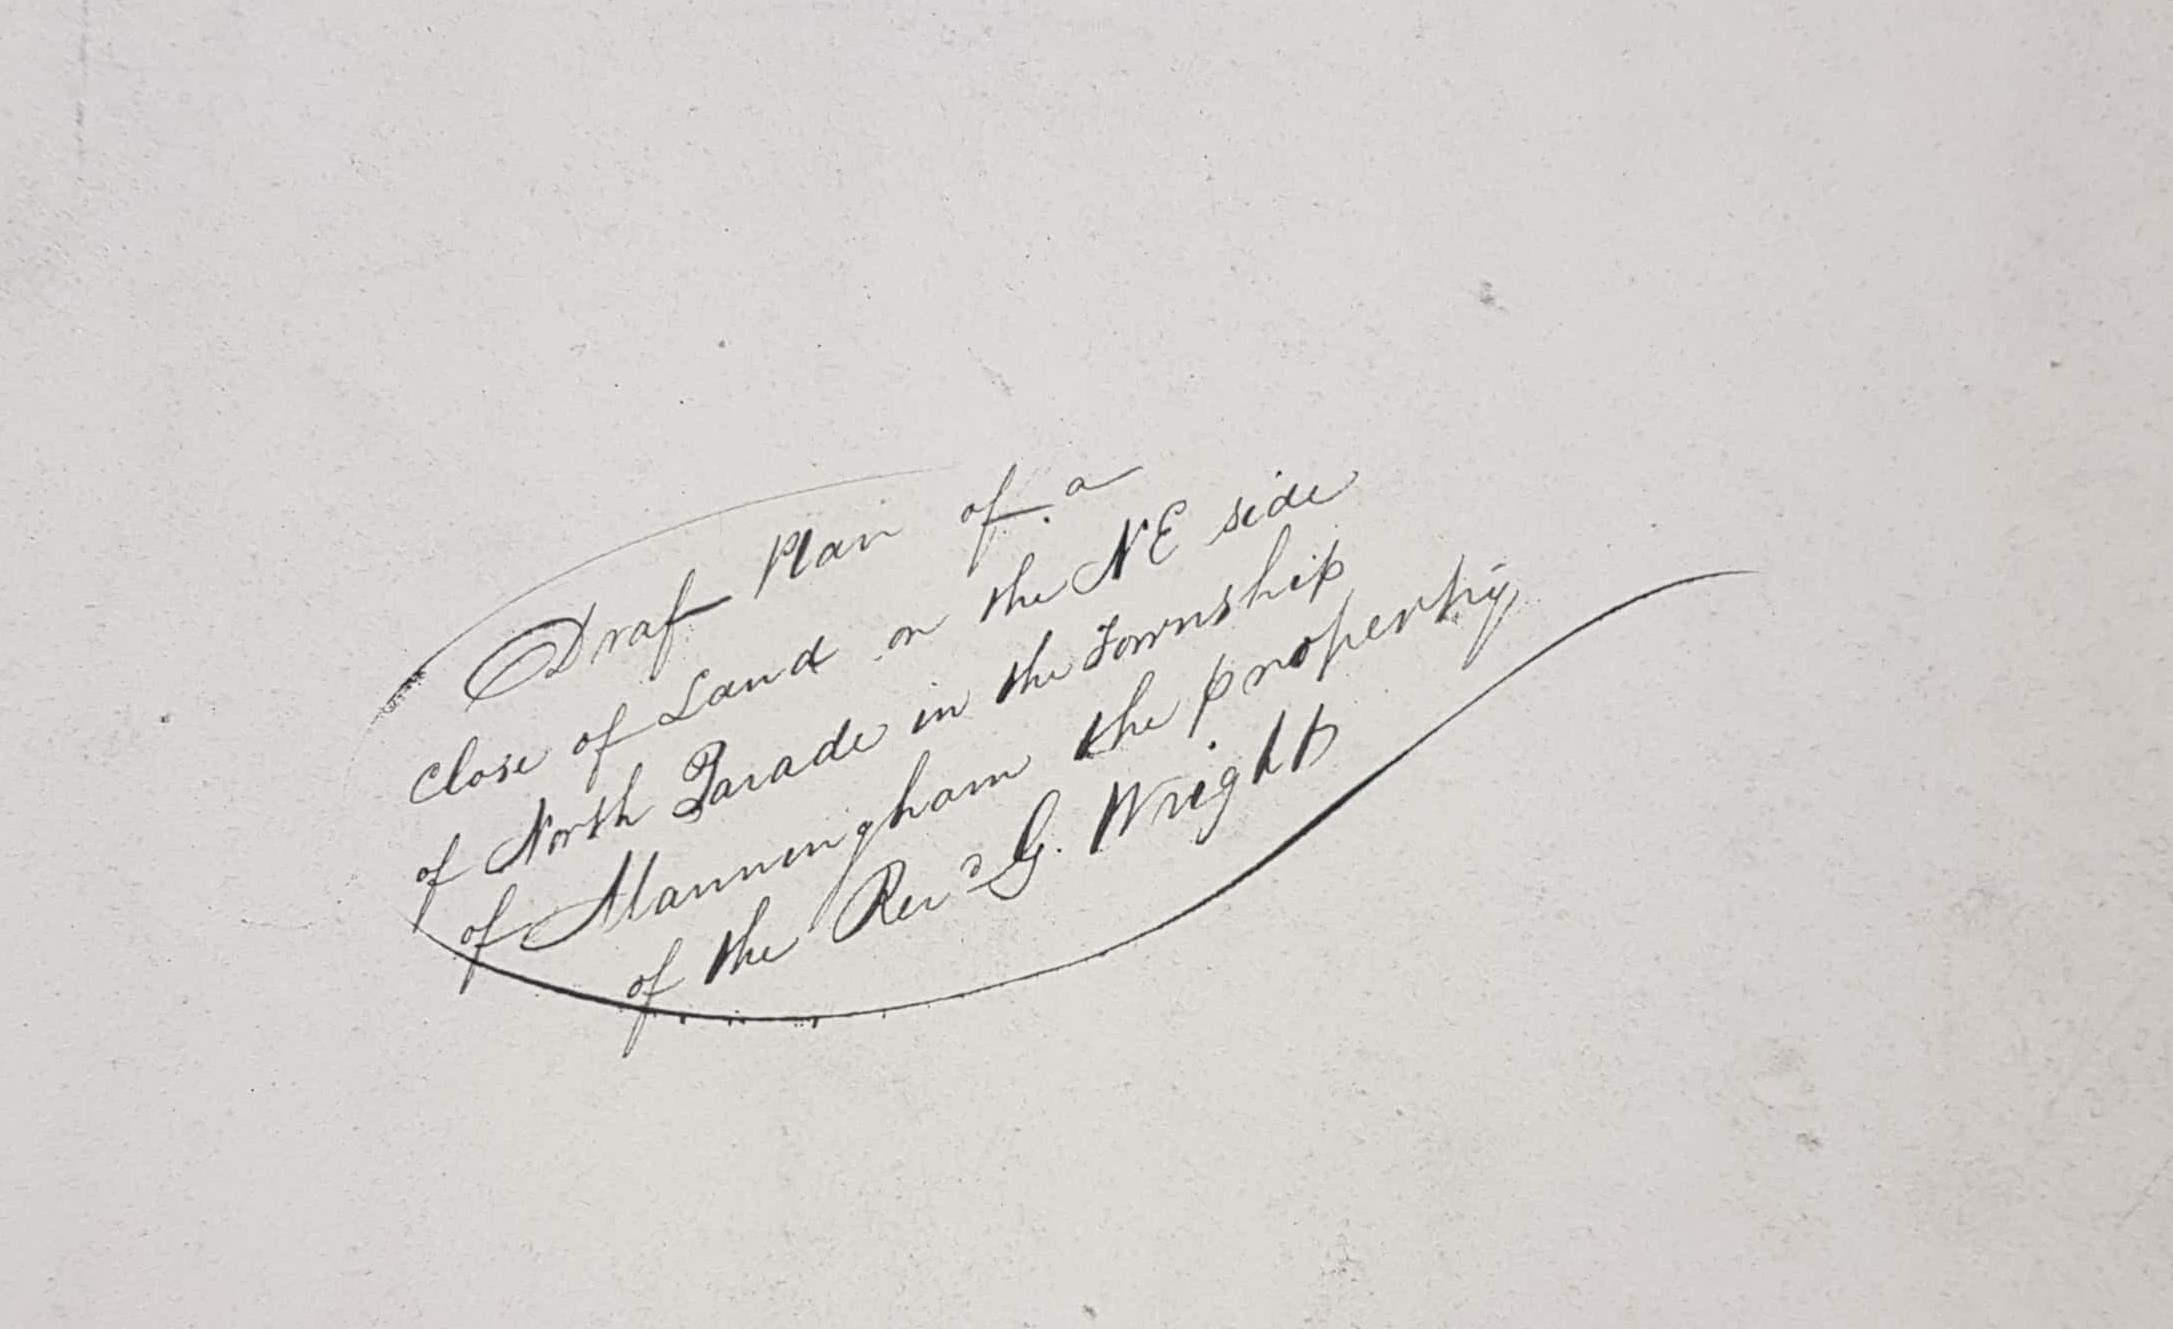 Draft Plan of a
Close of Land on the NE side
of North Parade in the Township
of Manningham the property
of the Revd G. Wright